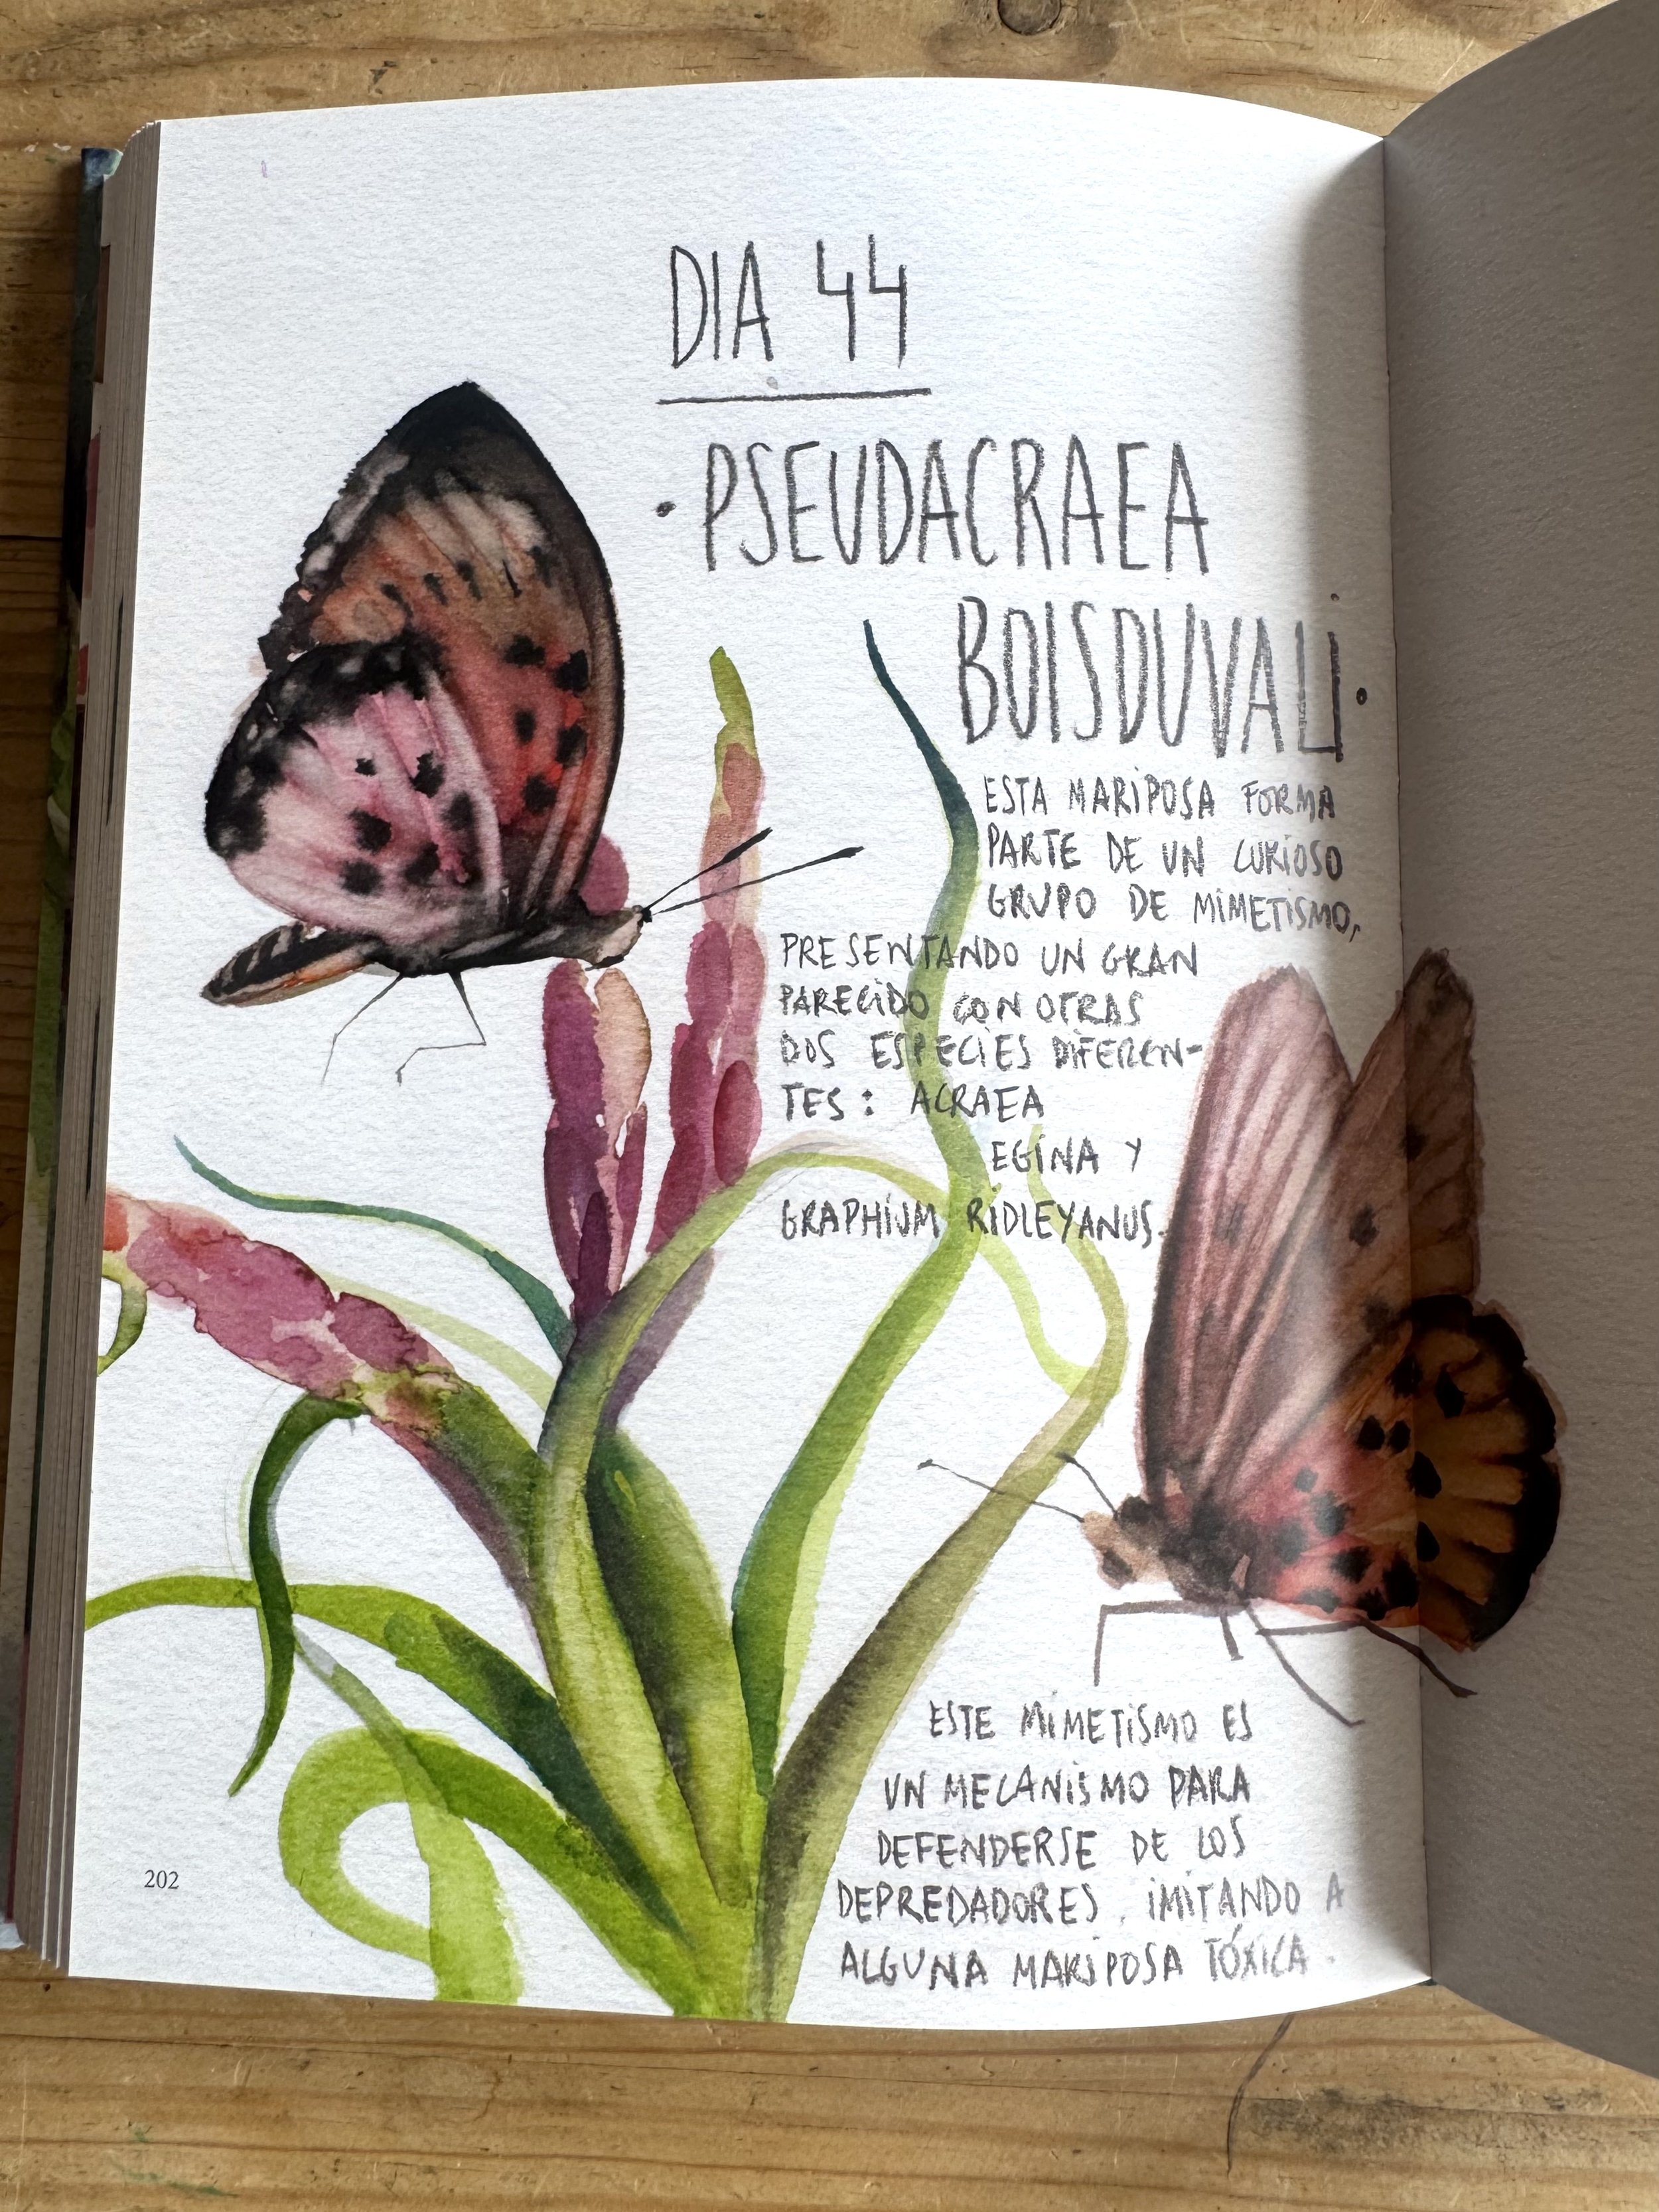 DIA 44
· PSEUDACRAEA
BOISDUVALI ·
ESTA MARIPOSA FORMA
PARTE DE UN CURIOSO
GRUPO DE MIMETISMO,
PRESENTANDO UN GRAN
PARECIDO CON OTRAS
DOS ESPECIES DIFEREN-
TES : ACRAEA
EGINA Y
GRAPHIUM RIDLEYANUS.
ESTE MIMETISMO ES
UN MECANISMO PARA
DEFENDERSE DE LOS
DEPREDADORES, IMITANDO A
ALGUNA MARIPOSA TÓXICA.
202